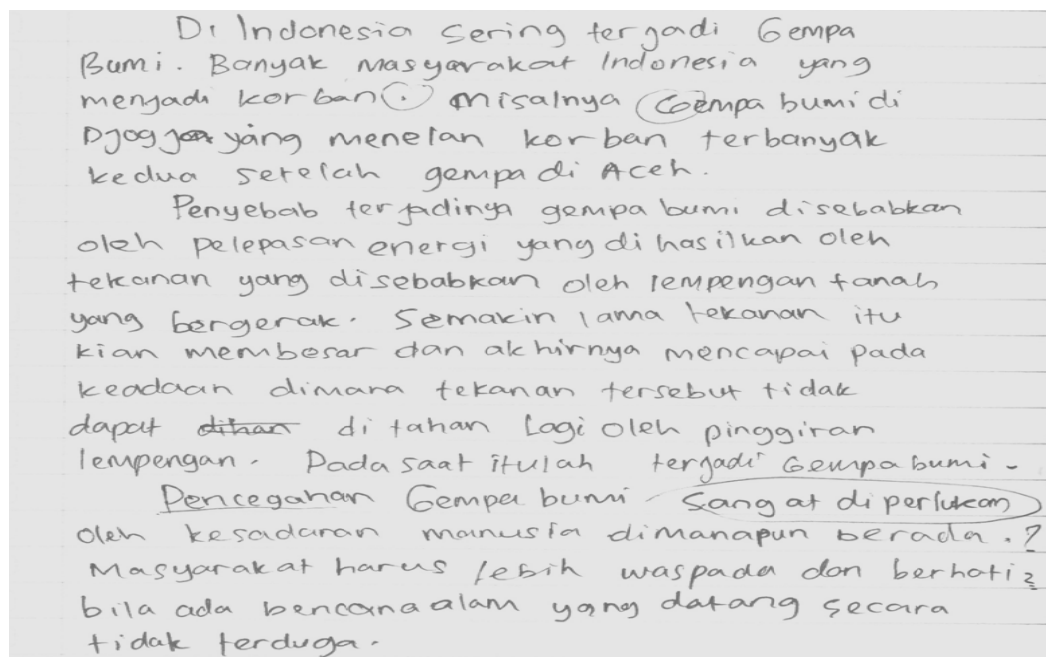 Di Indonesia sering terjadi Gempa
Bumi. Banyak masyarakat Indonesia yang
menjadi korban. misalnya Gempa bumi di
Djogja yang menelan korban terbanyak
kedua setelah gempa di Aceh.
Penyebab terjadinya gempa bumi disebabkan
oleh pelepasan energi yang di hasilkan oleh
tekanan yang disebabkan oleh lempengan tanah
yang bergerak. Semakin lama tekanan itu
kian membesar dan akhirnya mencapai pada
keadaan dimana tekanan tersebut tidak
dapat dihan di tahan lagi oleh pinggiran
lempengan. Pada saat itulah terjadi Gempa bumi.
Pencegahan Gempa bumi sangat diperlukan
oleh kesadaran manusia dimanapun berada.?
Masyarakat harus lebih waspada dan berhati2
bila ada bencana alam yang datang secara
tidak terduga.